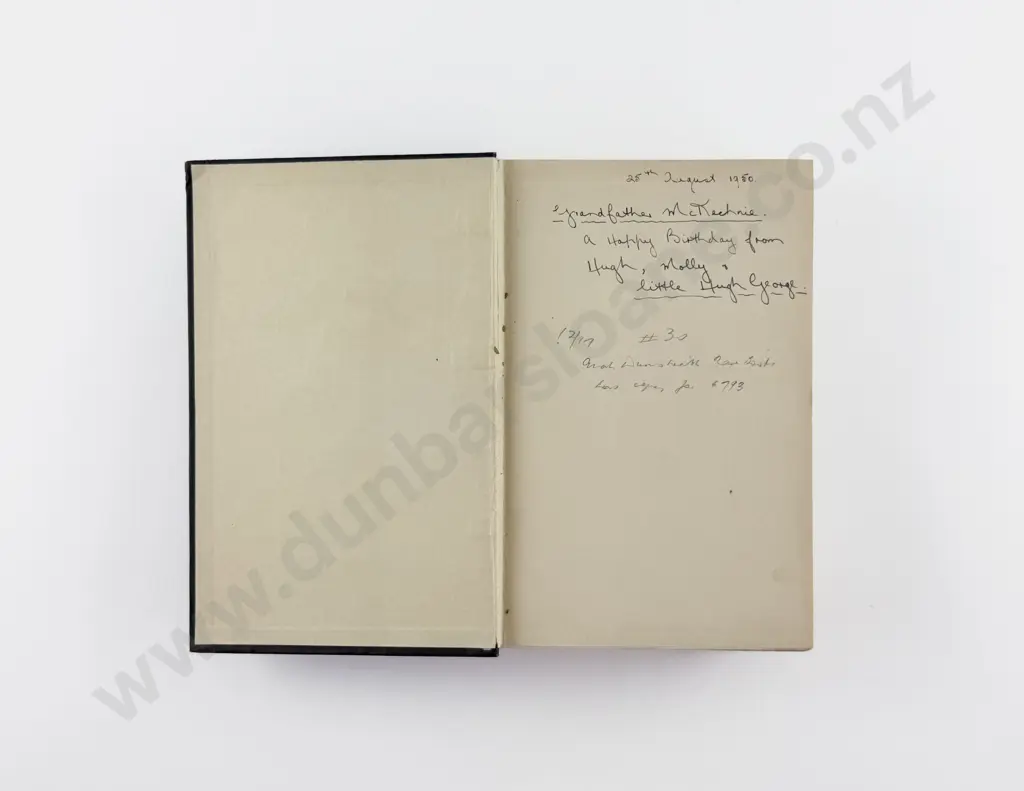 25th August 1950.
Grandfather McKechnie.
A Happy Birthday from
Hugh, Molly &
little Hugh George.
12/17 #30
6793
www.dunbarsloane.co.nz